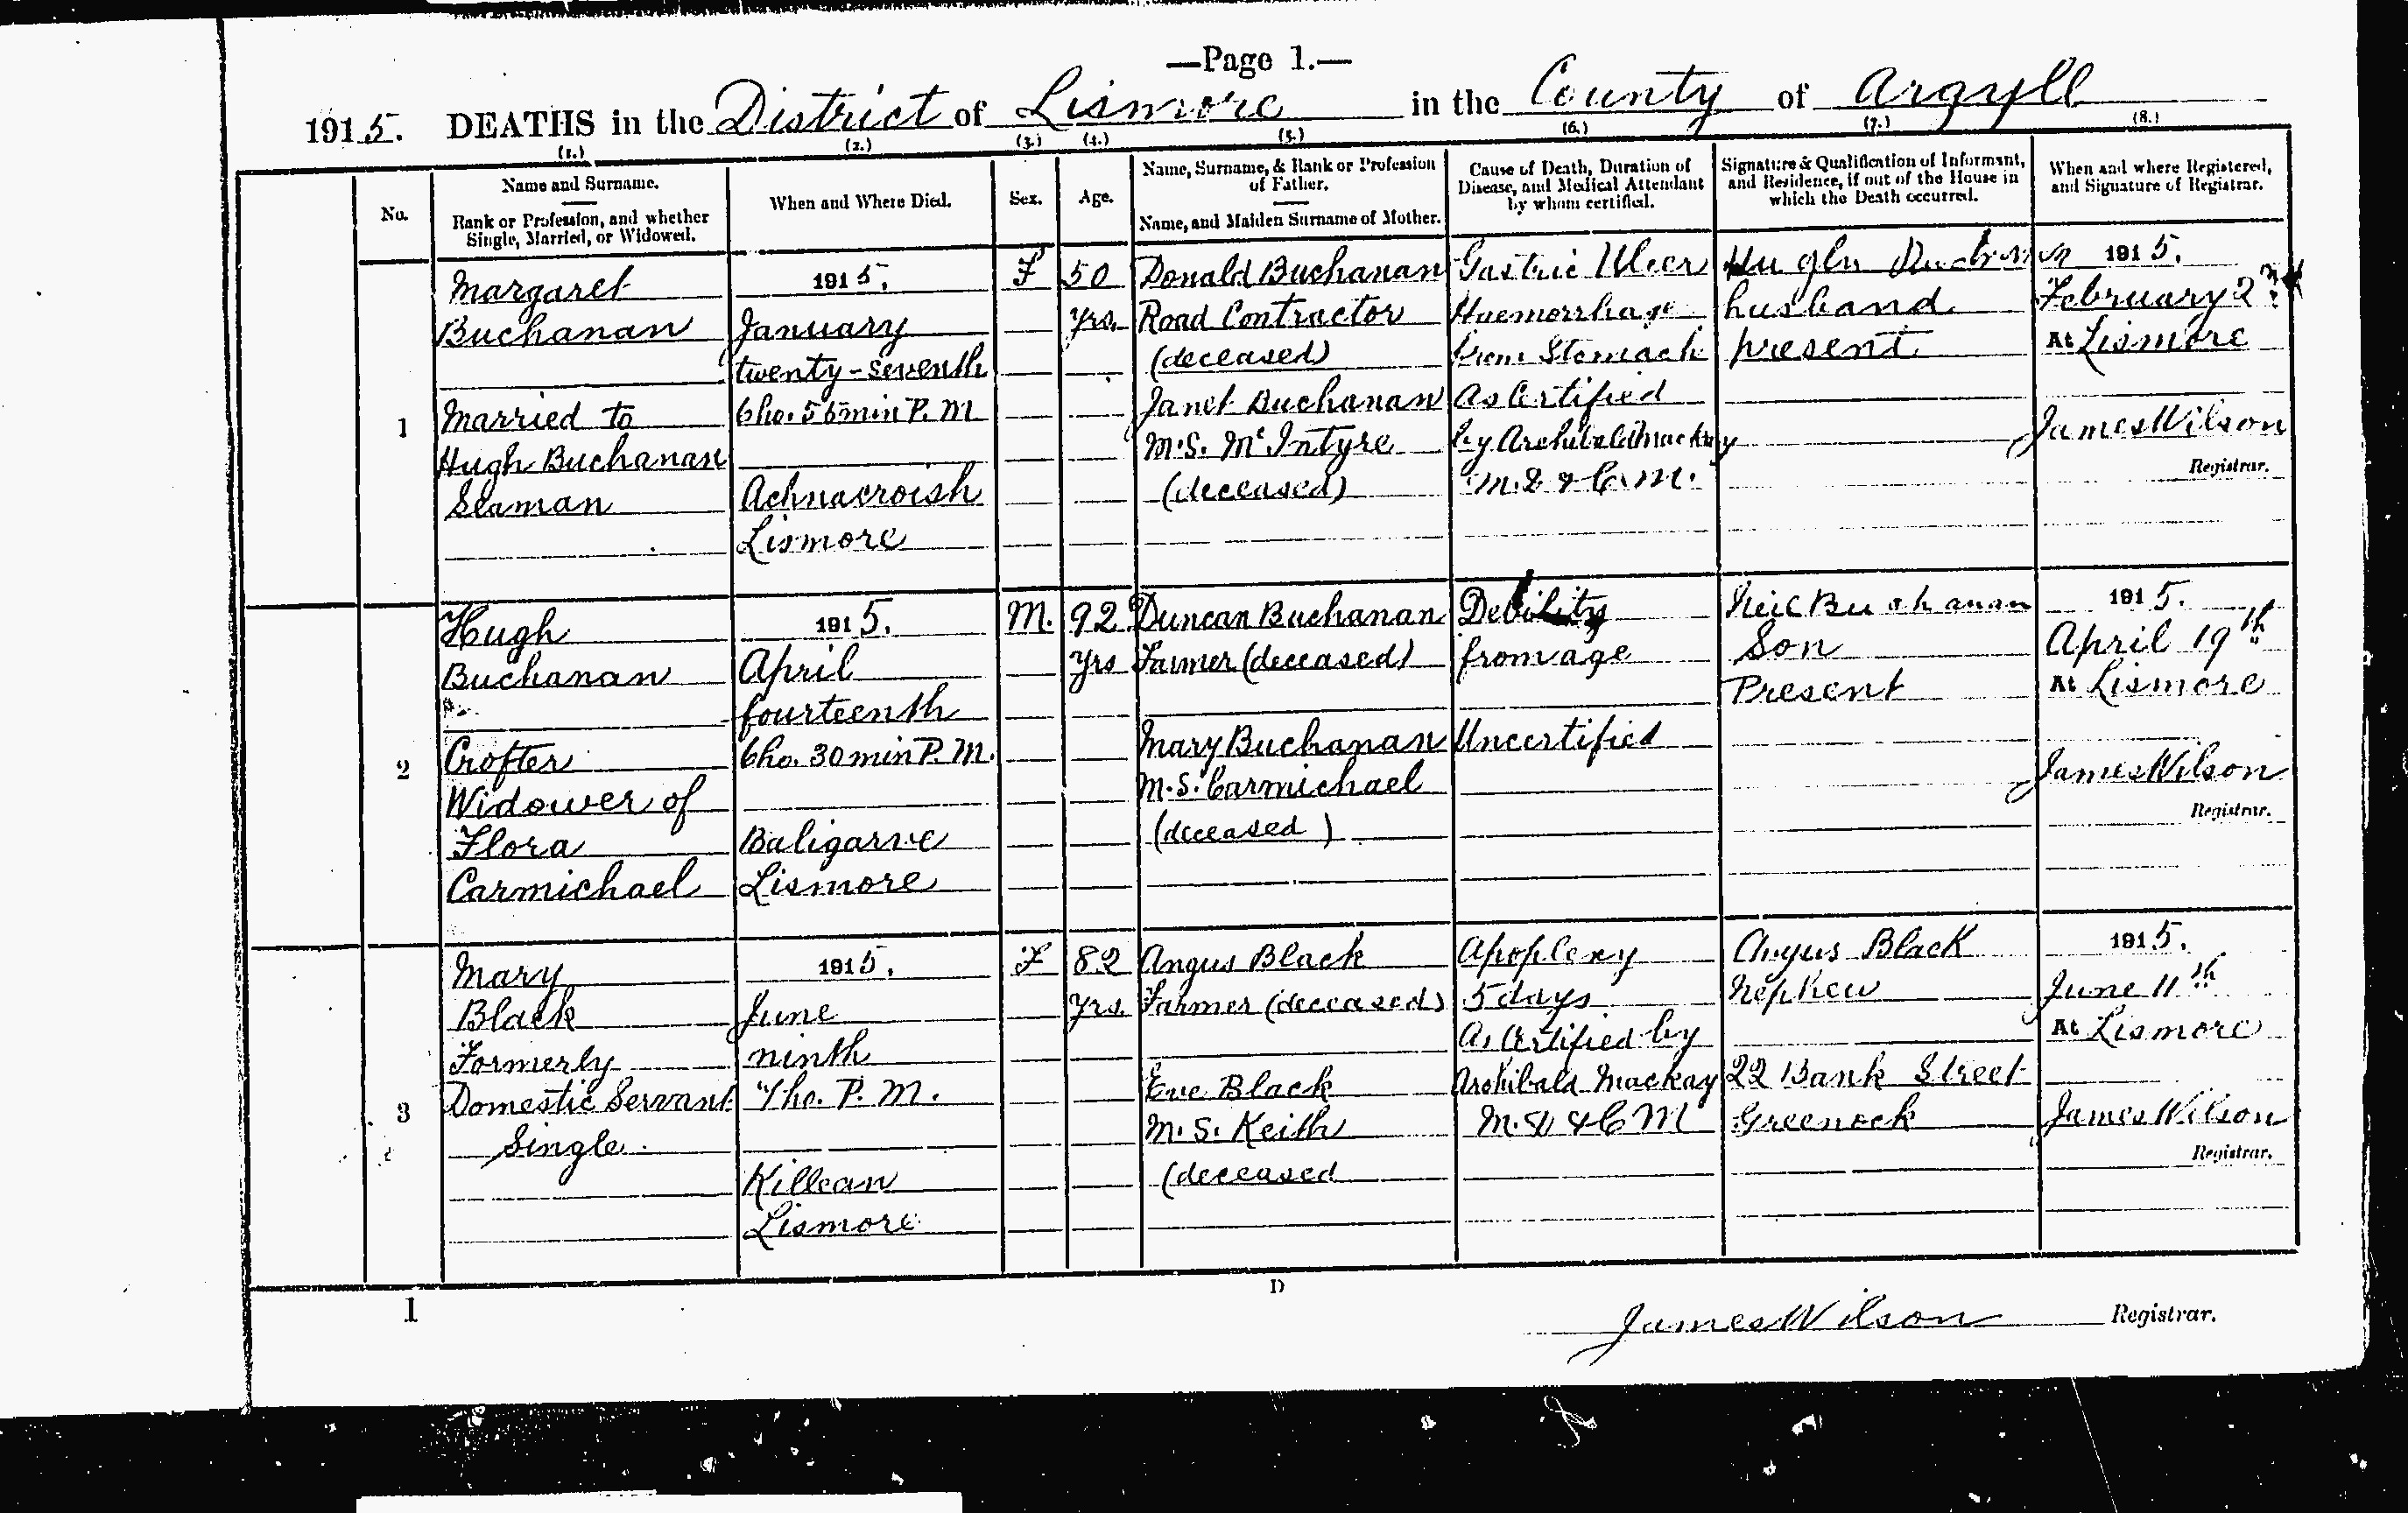 —Page 1.—
1915. DEATHS in the District of Lismore in the County of Argyll
(1.) (2.) (3.) (4.) (5.) (6.) (7.) (8.)
No.
Name and Surname.
Rank or Profession, and whether
Single, Married, or Widowed.
When and Where Died.
Sex.
Age.
Name, Surname, & Rank or Profession
of Father.
Name, and Maiden Surname of Mother.
Cause of Death, Duration of
Disease, and Medical Attendant
by whom certified.
Signature & Qualification of Informant,
and Residence, if out of the House in
which the Death occurred.
When and where Registered,
and Signature of Registrar.
1
Margaret
Buchanan
Married to
Hugh Buchanan
Seaman
1915.
January
twenty-seventh
6ho. 55min P.M
Achnacroish
Lismore
F
50
yrs.
Donald Buchanan
Road Contractor
(deceased)
Janet Buchanan
M.S. McIntyre
(deceased)
Gastric Ulcer
Haemorrhage
from Stomach
As Certified
by Archibald Mackay
M.B & C.M.
Hugh Buchanan
husband
present
1915.
February 2nd
At Lismore
James Wilson
Registrar.
2
Hugh
Buchanan
Crofter
Widower of
Flora
Carmichael
1915.
April
fourteenth
6ho. 30min P.M.
Baligarve
Lismore
M.
92
yrs
Duncan Buchanan
Farmer (deceased)
Mary Buchanan
M.S. Carmichael
(deceased)
Debility
from age
Uncertified
Neil Buchanan
Son
Present
1915.
April 19th
At Lismore
James Wilson
Registrar.
3
Mary
Black
Formerly
Domestic Servant
Single.
1915.
June
ninth
7ho. P.M.
Killean
Lismore
F
82
yrs.
Angus Black
Farmer (deceased)
Eve Black
M.S. Keith
(deceased
Apoplexy
5 days
As Certified by
Archibald Mackay
M.B & C M
Angus Black
Nephew
22 Bank Street
Greenock
1915.
June 11th
At Lismore
James Wilson
Registrar.
1
D
James Wilson Registrar.